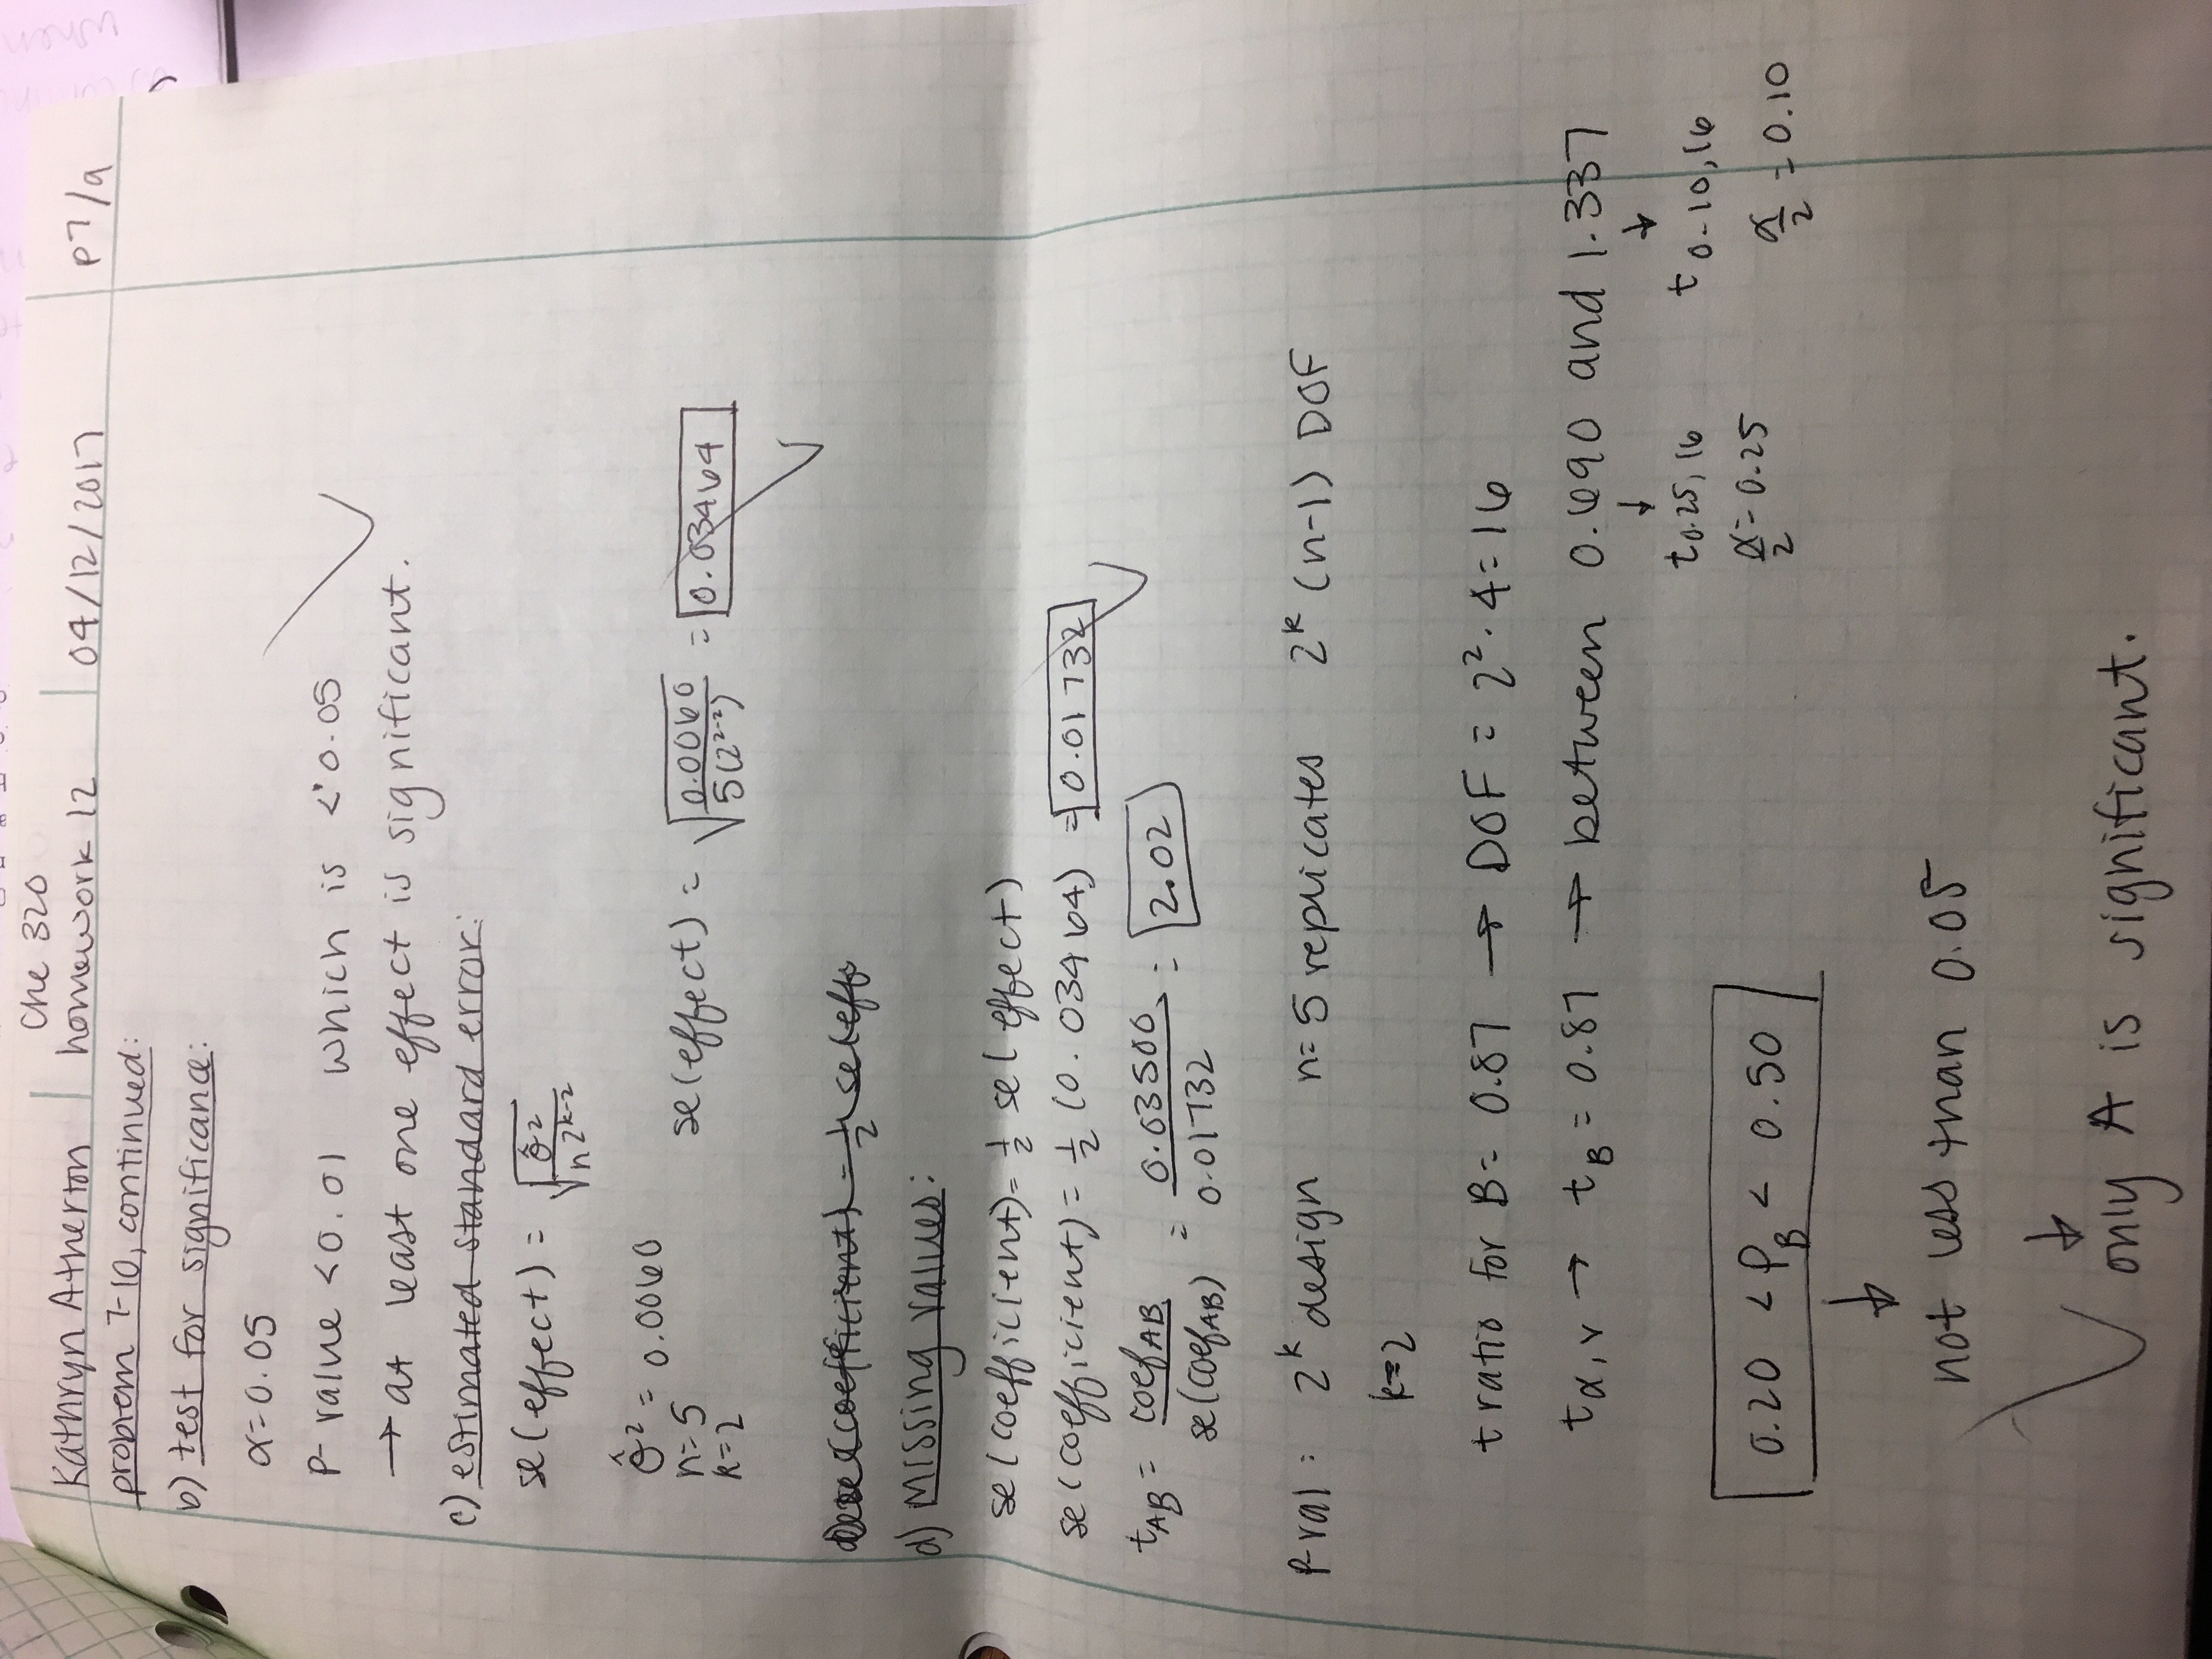 Kathryn Atherton | Che 320 homework 12 | 04/12/2017 | p7/9
problem 7-10, continued:
b) test for significance:
α=0.05
P-value <0.01 which is <0.05
→ at least one effect is significant.
c) estimated standard error:
se(effect) = √(σ̂²/n2^(k-2))
σ̂² = 0.0060
n=5
k=2
se(effect) = √(0.0060/5(2^(2-2))) = 0.03464
d) Missing values:
se(coefficient)= 1/2 se(effect)
se(coefficient)= 1/2 (0.03464) = 0.01732
t_AB = coef_AB/se(coef_AB) = 0.03500/0.01732 = 2.02
P-val: 2^k design n=5 replicates 2^k (n-1) DOF
k=2
t ratio for B= 0.87 → DOF = 2²·4=16
t_α,v → t_B = 0.87 → between 0.690 and 1.337
↓ ↓
t_0.25,16 t_0.10,16
α/2 = 0.25 α/2 = 0.10
0.20 < P_B < 0.50
↓
not less than 0.05
↓
only A is significant.